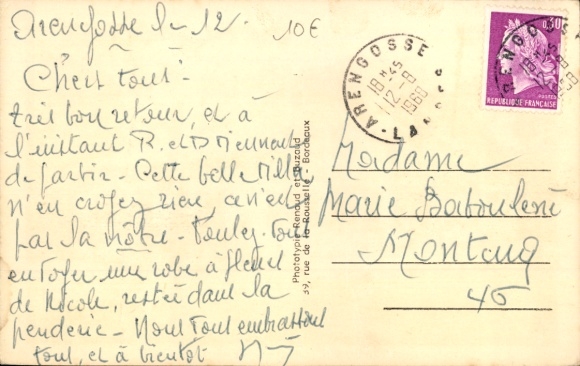 Arengosse le 12.
10€
Chers tous.
très bon retour, et à
l'instant R. et D Miennent
de partir. Cette belle Villa,
n'en croyez rien, ce n'est
par la nôtre. Voulez-vous
envoyer une robe à fleurs
de Nicole, restée dans la
penderie. Nous vous embrassons
tous, et à bientôt
Phototypie Renaud et Buzaud
39, rue de la Rousselle - Bordeaux
ARENGOSSE
18H45
12-8
1968
LANDES
0,30
POSTES
REPUBLIQUE FRANÇAISE
ARENGOSSE
18H45
12-8
1968
Madame
Marie Baboulène
Montauq
46